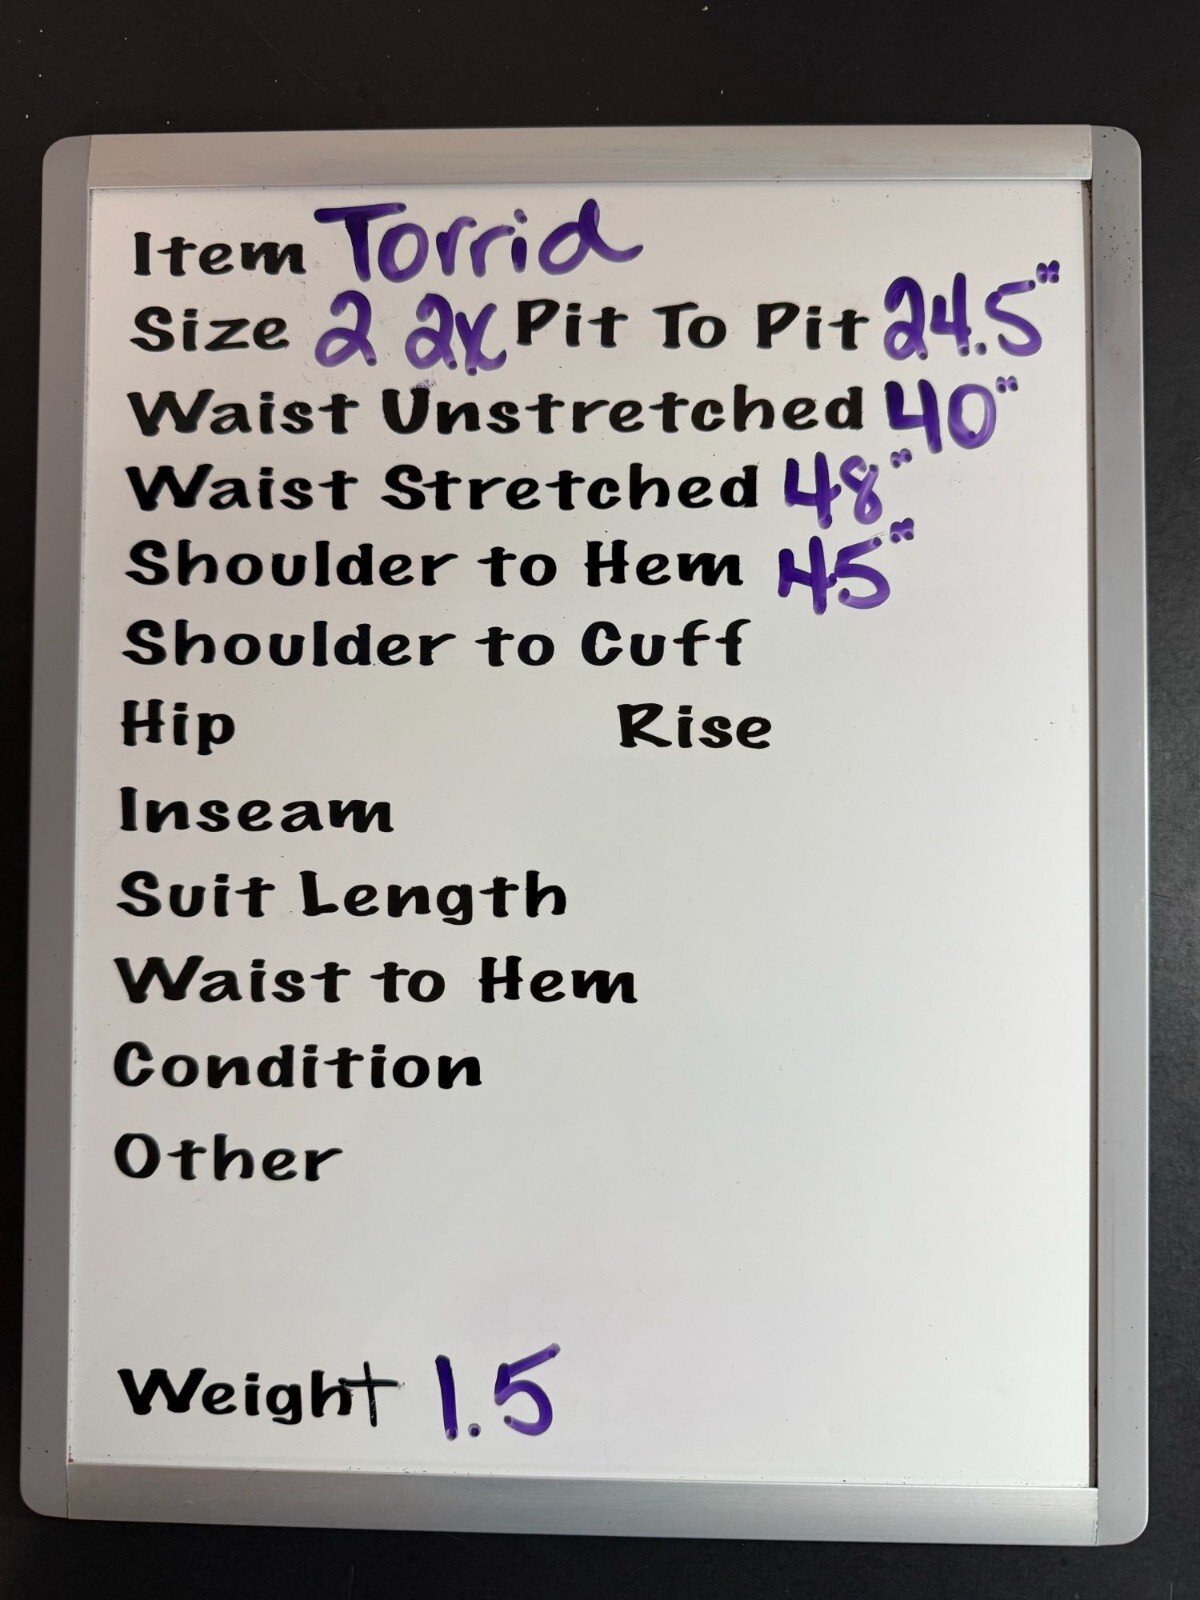 Item Torrid
Size 2 2X Pit To Pit 24.5"
Waist Unstretched 40"
Waist Stretched 48"
Shoulder to Hem 45"
Shoulder to Cuff
Hip Rise
Inseam
Suit Length
Waist to Hem
Condition
Other
Weight 1.5